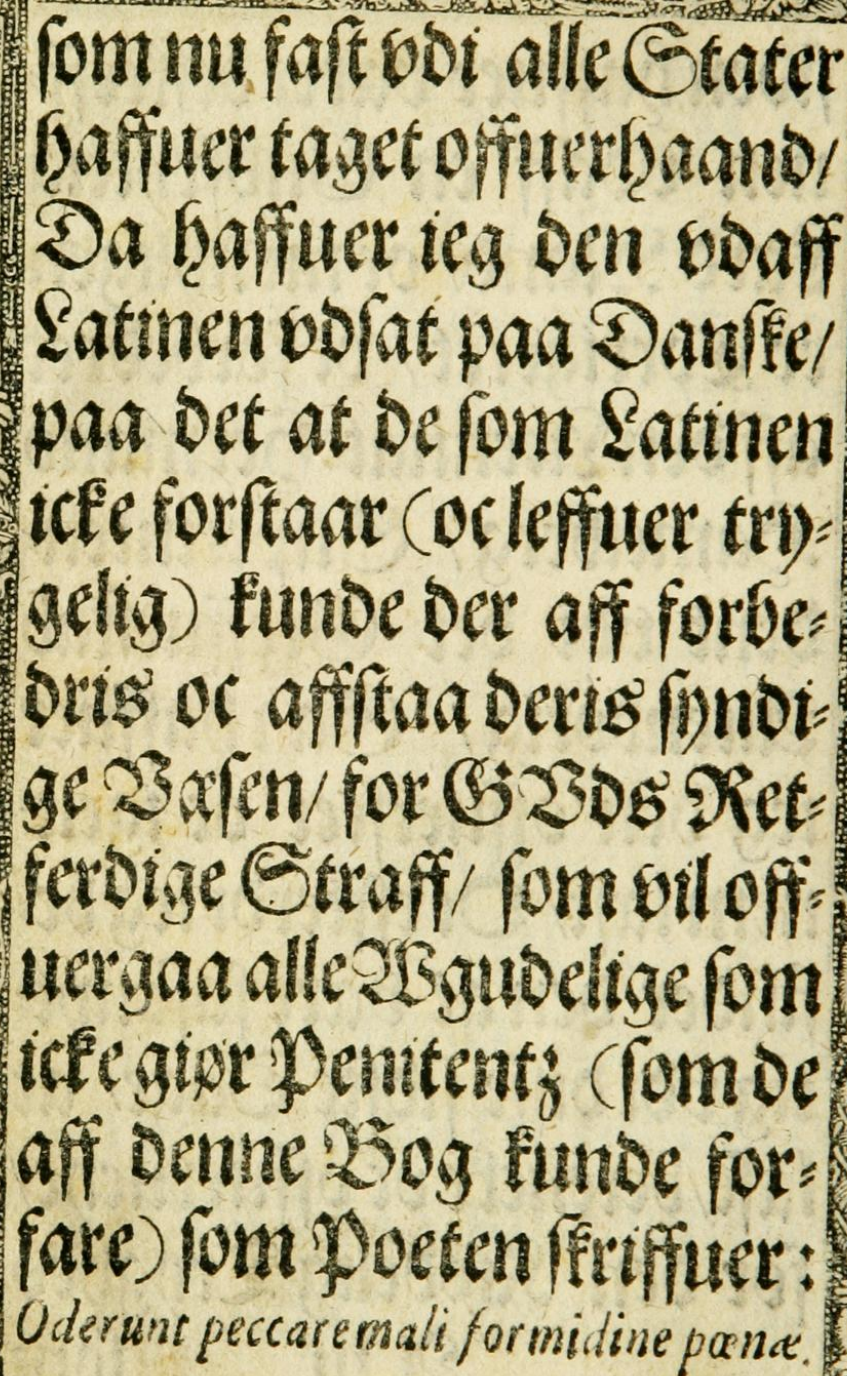 som nu fast vdi alle Stater
haffuer taget offuerhaand/
Da haffuer ieg den vdaff
Latinen vdsat paa Danske/
paa det at de som Latinen
icke forstaar (oc leffuer try-
gelig) kunde der aff forbe-
dris oc affstaa deris syndi-
ge Væsen/ for GVds Ret-
ferdige Straff/ som vil off-
uergaa alle Wgudelige som
icke giør Penitentz (som de
aff denne Bog kunde for-
fare) som Poeten skriffuer:
Oderunt peccare mali formidine pœnæ.